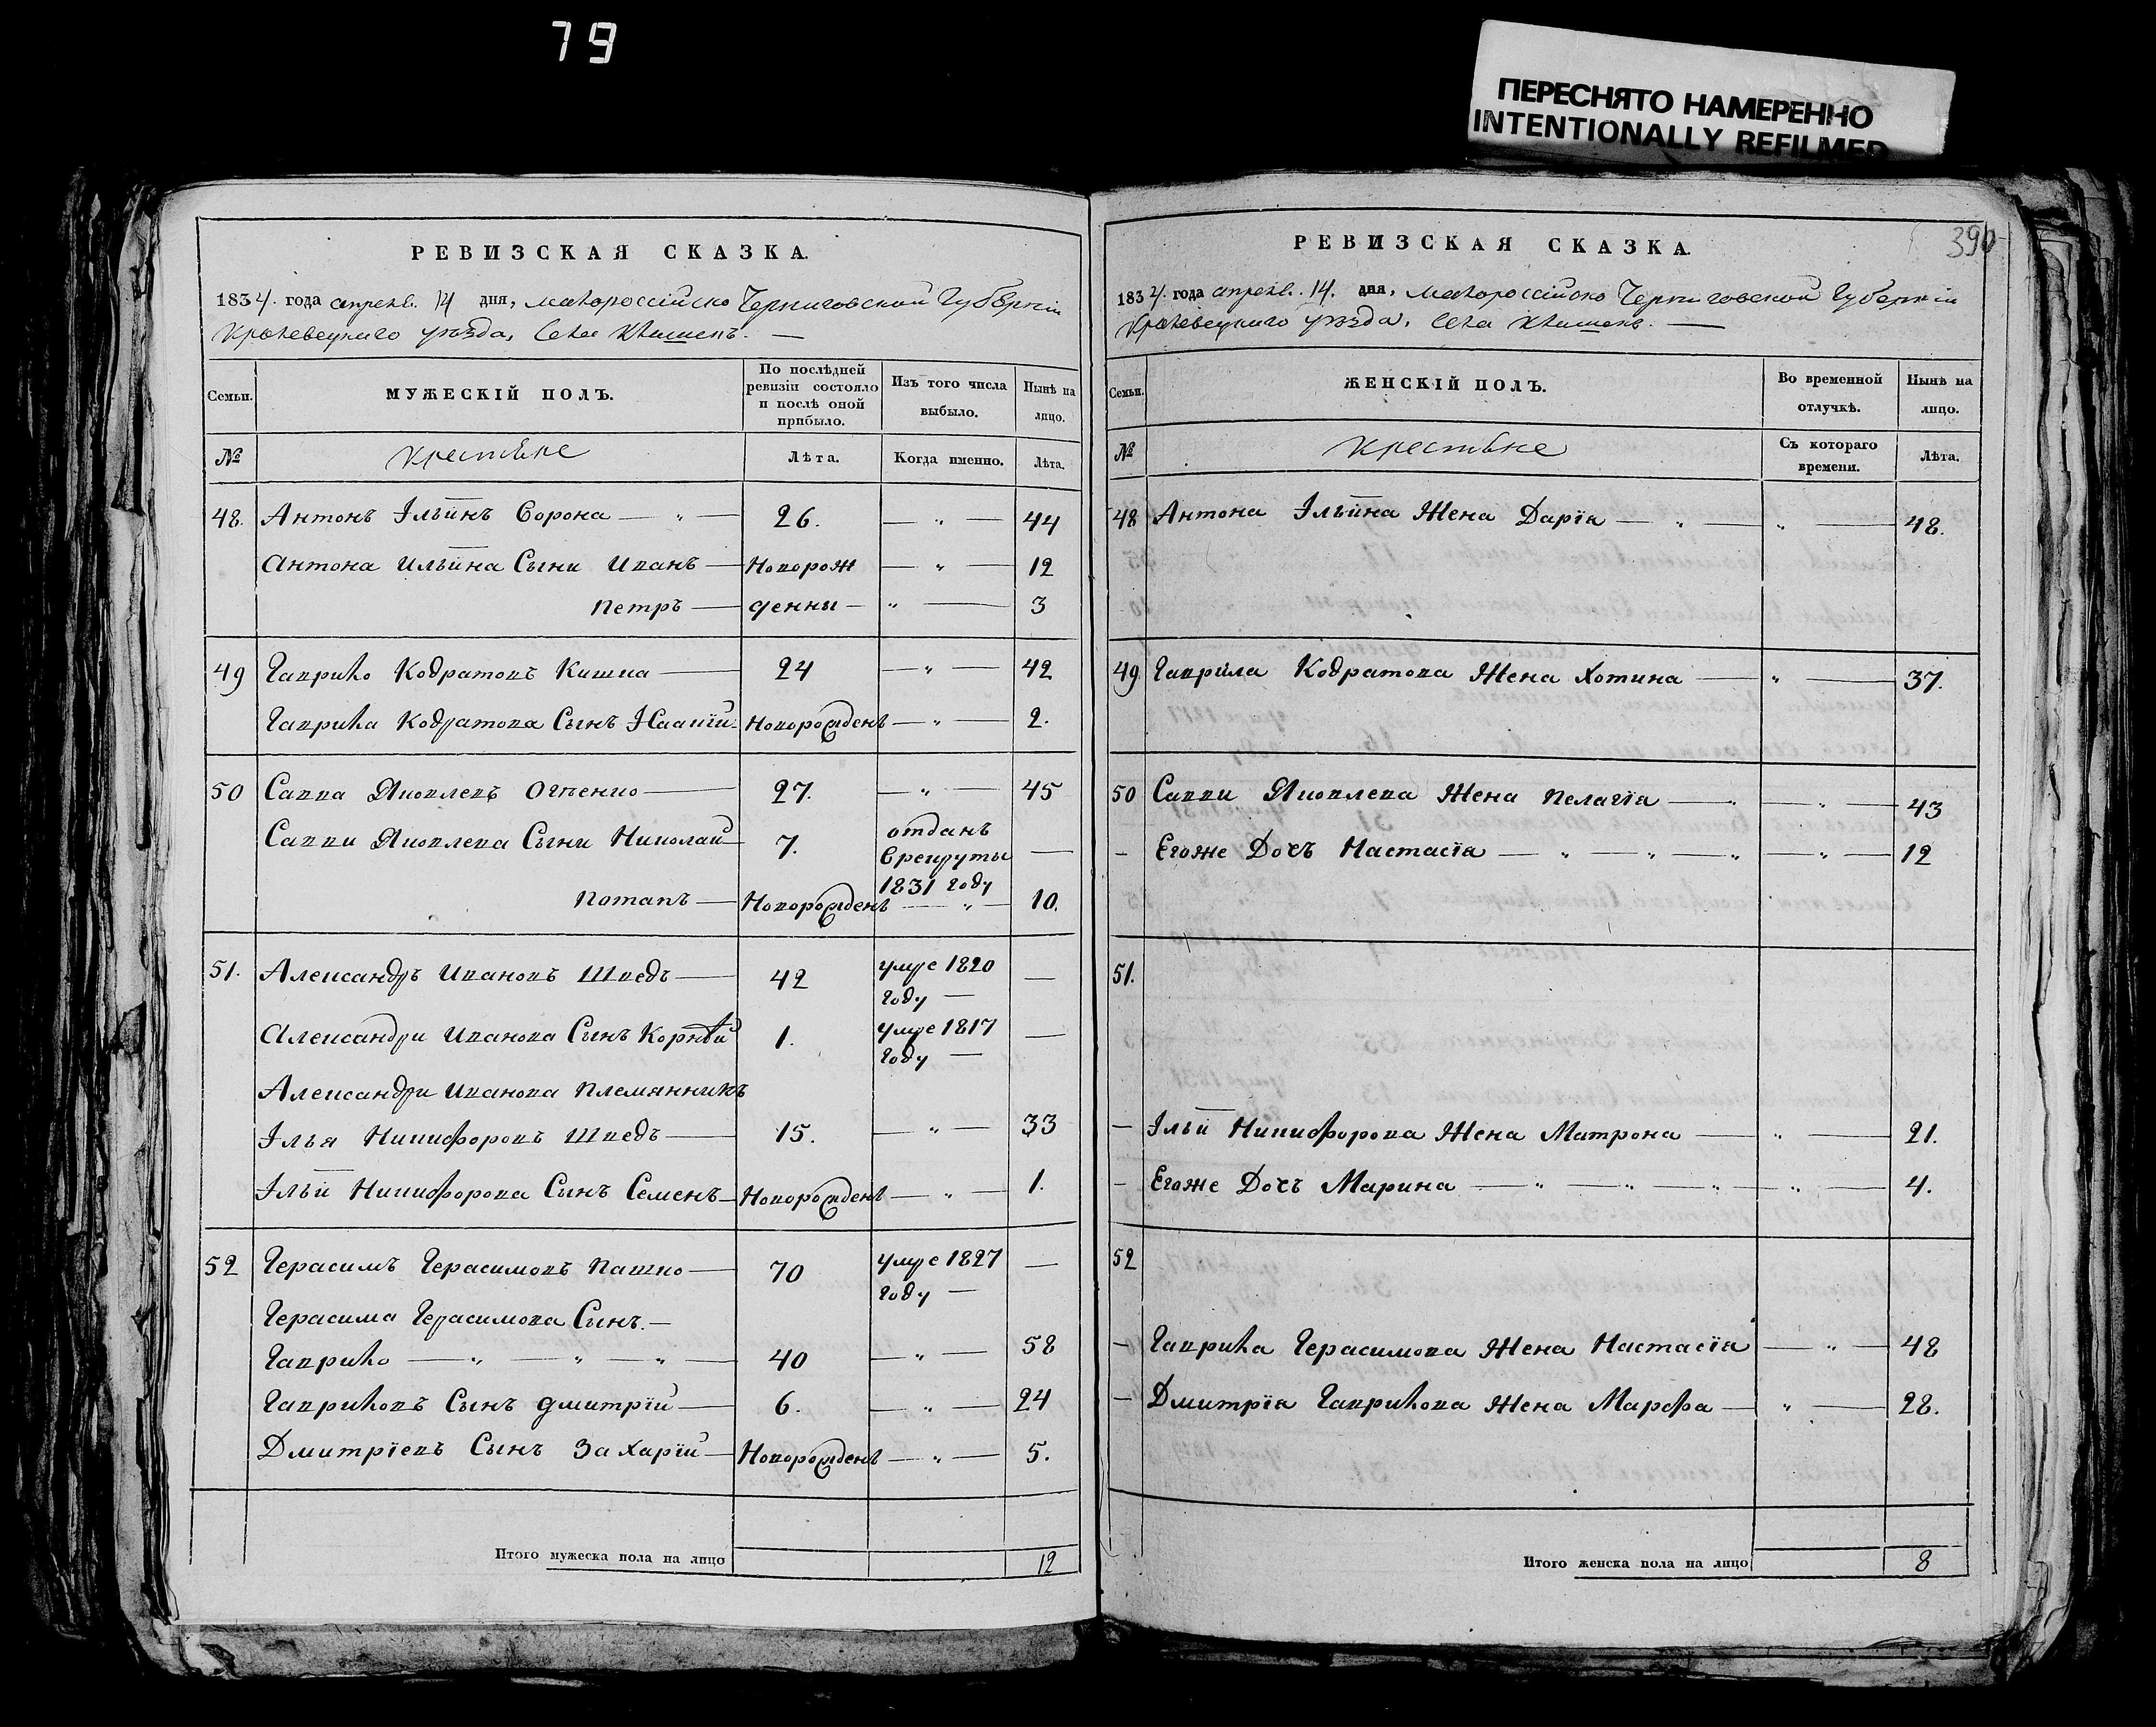 79
ПЕРЕСНЯТО НАМЕРЕННО
INTENTIONALLY REFILMED
РЕВИЗСКАЯ СКАЗКА.
1834. года апреля. 14 дня, малороссійско Черниговской Губерніи
Кролевецкаго уезда, Села Клишекъ. —
Семьи. МУЖЕСКІЙ ПОЛЪ. По послѣдней ревизіи состояло и послѣ оной прибыло. Изъ того числа выбыло. Нынѣ на лицо.
№ Крестьяне Лѣта. Когда именно. Лѣта.
48. Антонъ Ільинъ Сорока — „ — 26. — „ — 44
Антона Ильина Сыни Иванъ — Новорож — „ — 12
Петръ — денни — „ — 3
49 Гаврило Кодратовъ Кишка — 24 — „ — 42
Гаврила Кодратова Сынъ Ісакій Новорожденъ — „ — 2.
50 Савва Яковлевъ Огіенко — 27. — „ — 45
Савви Яковлева Сыни Николай — 7. отданъ в рекруты 1831 году —
Потапъ — Новорожденъ — „ — 10.
51. Александръ Ивановъ Шведъ — 42 умре 1820 году — —
Александри Иванова Сынъ Корнѣй 1. умре 1817 году — —
Александри Иванова племянникъ
Ілья Никифоровъ Шведъ — 15. — „ — 33
Ільи Никифорова Сынъ Семенъ — Новорожденъ — „ — 1.
52 Герасимъ Герасимовъ Пашко — 70 умре 1827 году — —
Герасима Герасимова Сынъ. —
Гаврило — „ — „ — „ — 40 — „ — 58
Гавриловъ Сынъ Дмитрій — 6. — „ — 24
Дмитріевъ Сынъ Захарій — Новорожденъ — „ — 5.
Итого мужеска пола на лицо 12
390
РЕВИЗСКАЯ СКАЗКА.
1834. года апреля. 14. дня, малороссійско Черниговской Губерніи
Кролевецкаго уезда, Села Клишекъ. —
Семьи. ЖЕНСКІЙ ПОЛЪ. Во временной отлучкѣ. Нынѣ на лицо.
№ Крестьяне Съ котораго времени. Лѣта.
48 Антона Ільина Жена Дарія — „ — „ — 48.
49 Гаврила Кодратова Жена Хотина — „ — 37.
50 Савви Яковлева Жена Пелагія — „ — „ — 43
— Егоже Дочъ Настасія — „ — „ — „ — „ — 12
51.
— Ільи Никифорова Жена Матрона — „ — 21.
— Егоже Дочъ Марина — „ — „ — „ — „ — 4.
52
— Гаврила Герасимова Жена Настасія — „ — 48
— Дмитрія Гаврилова Жена Марфа — „ — 28.
Итого женска пола на лицо 8